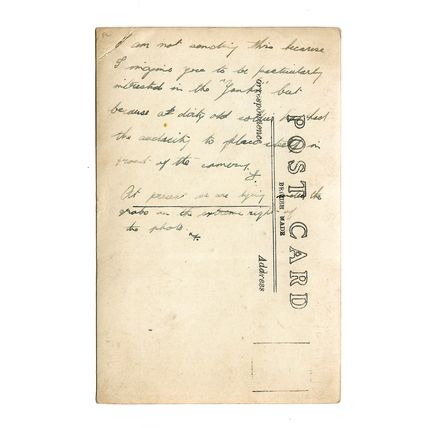 I am not sending this because
I imagine you to be particularly
interested in the "Yanks" but
because a dirty old had
the audacity to place in
front of the camera.
At present we are lying the
on the extreme right of
the photo
Correspondence
POST CARD
BRITISH MADE
Address